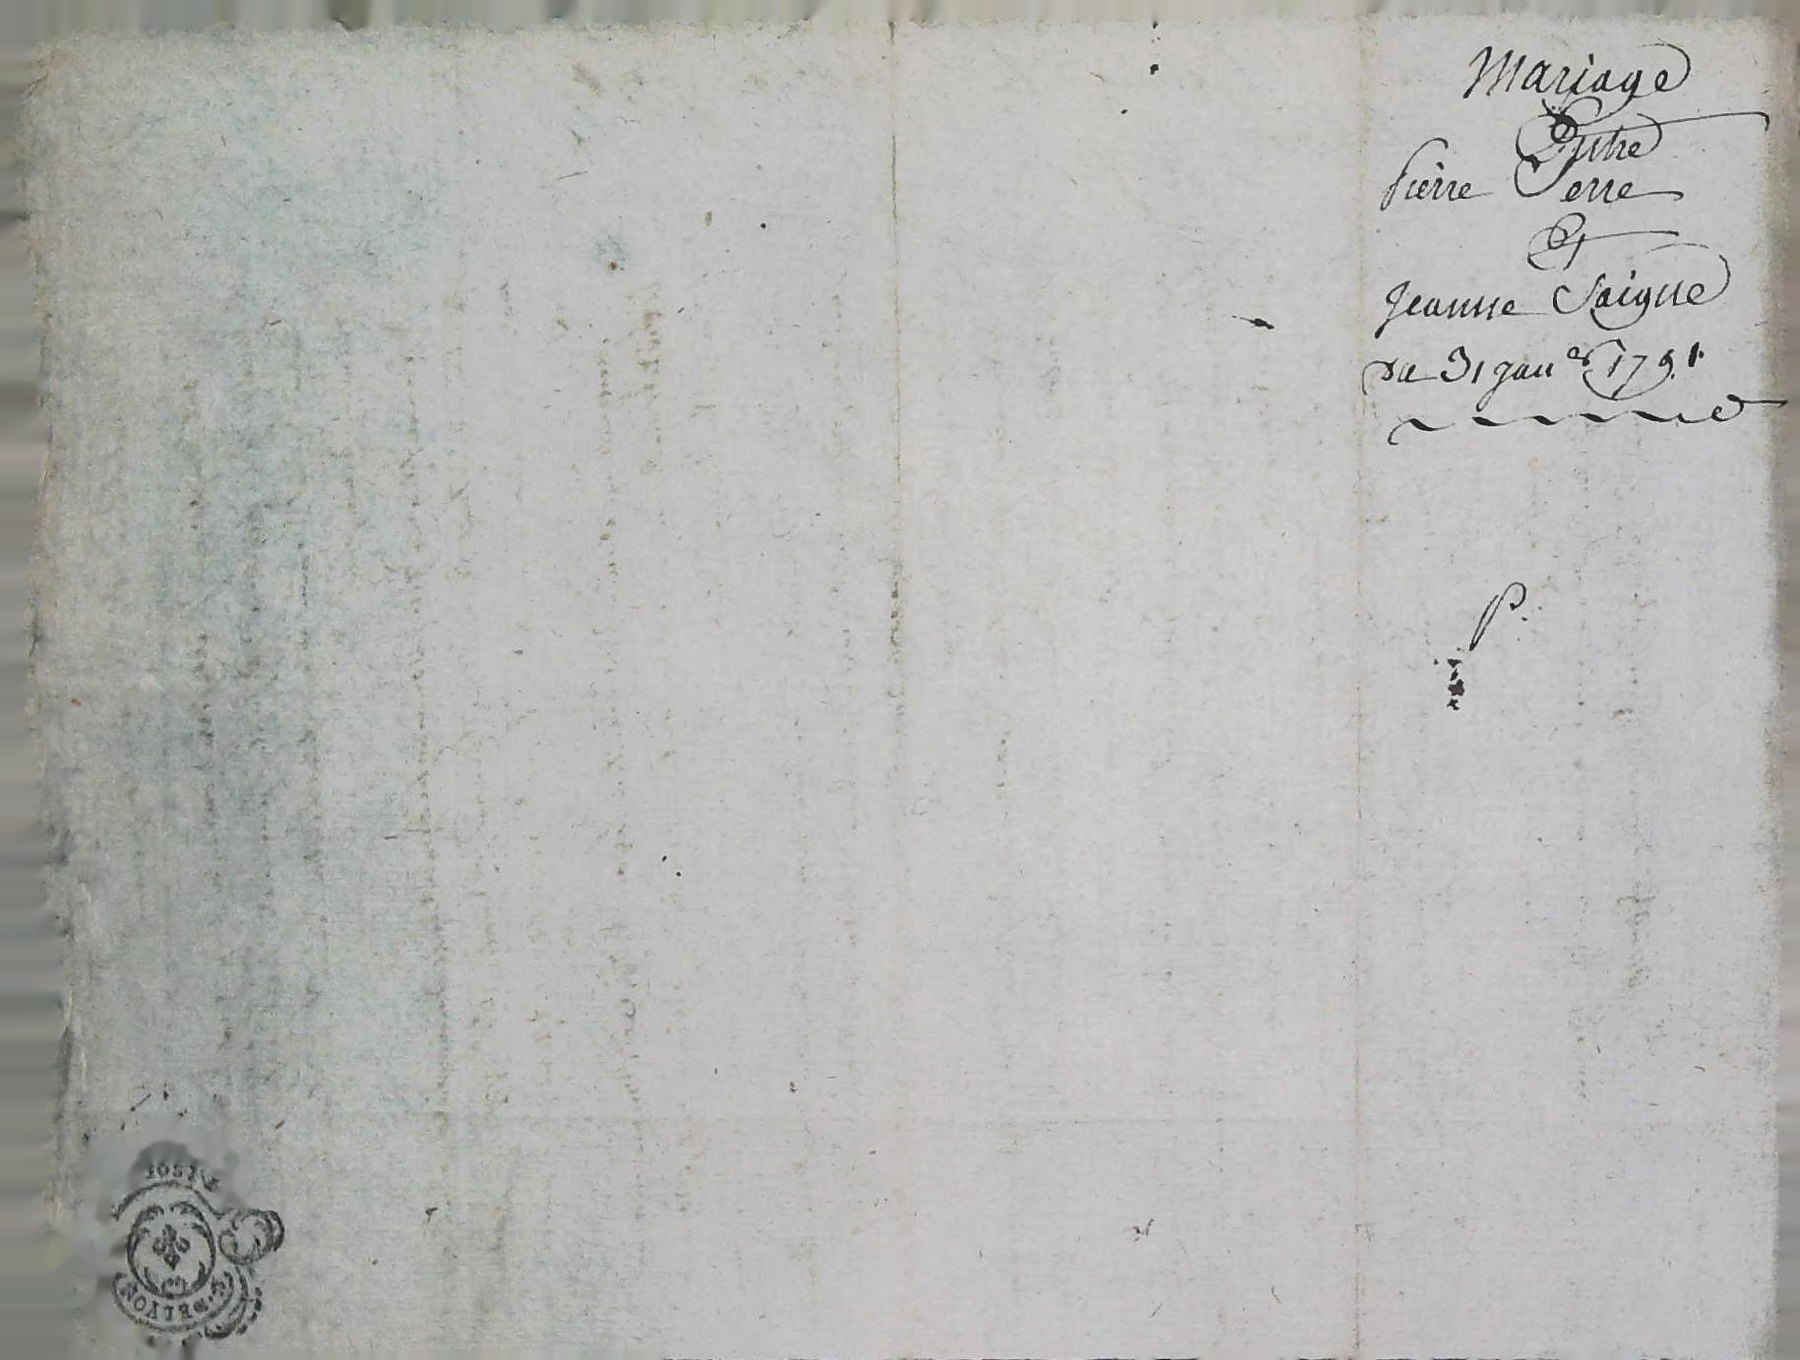 Mariage
Entre
Pierre Serre
Et
Jeanne Saigne
du 31 janer 1791
P.
G. DE LYON